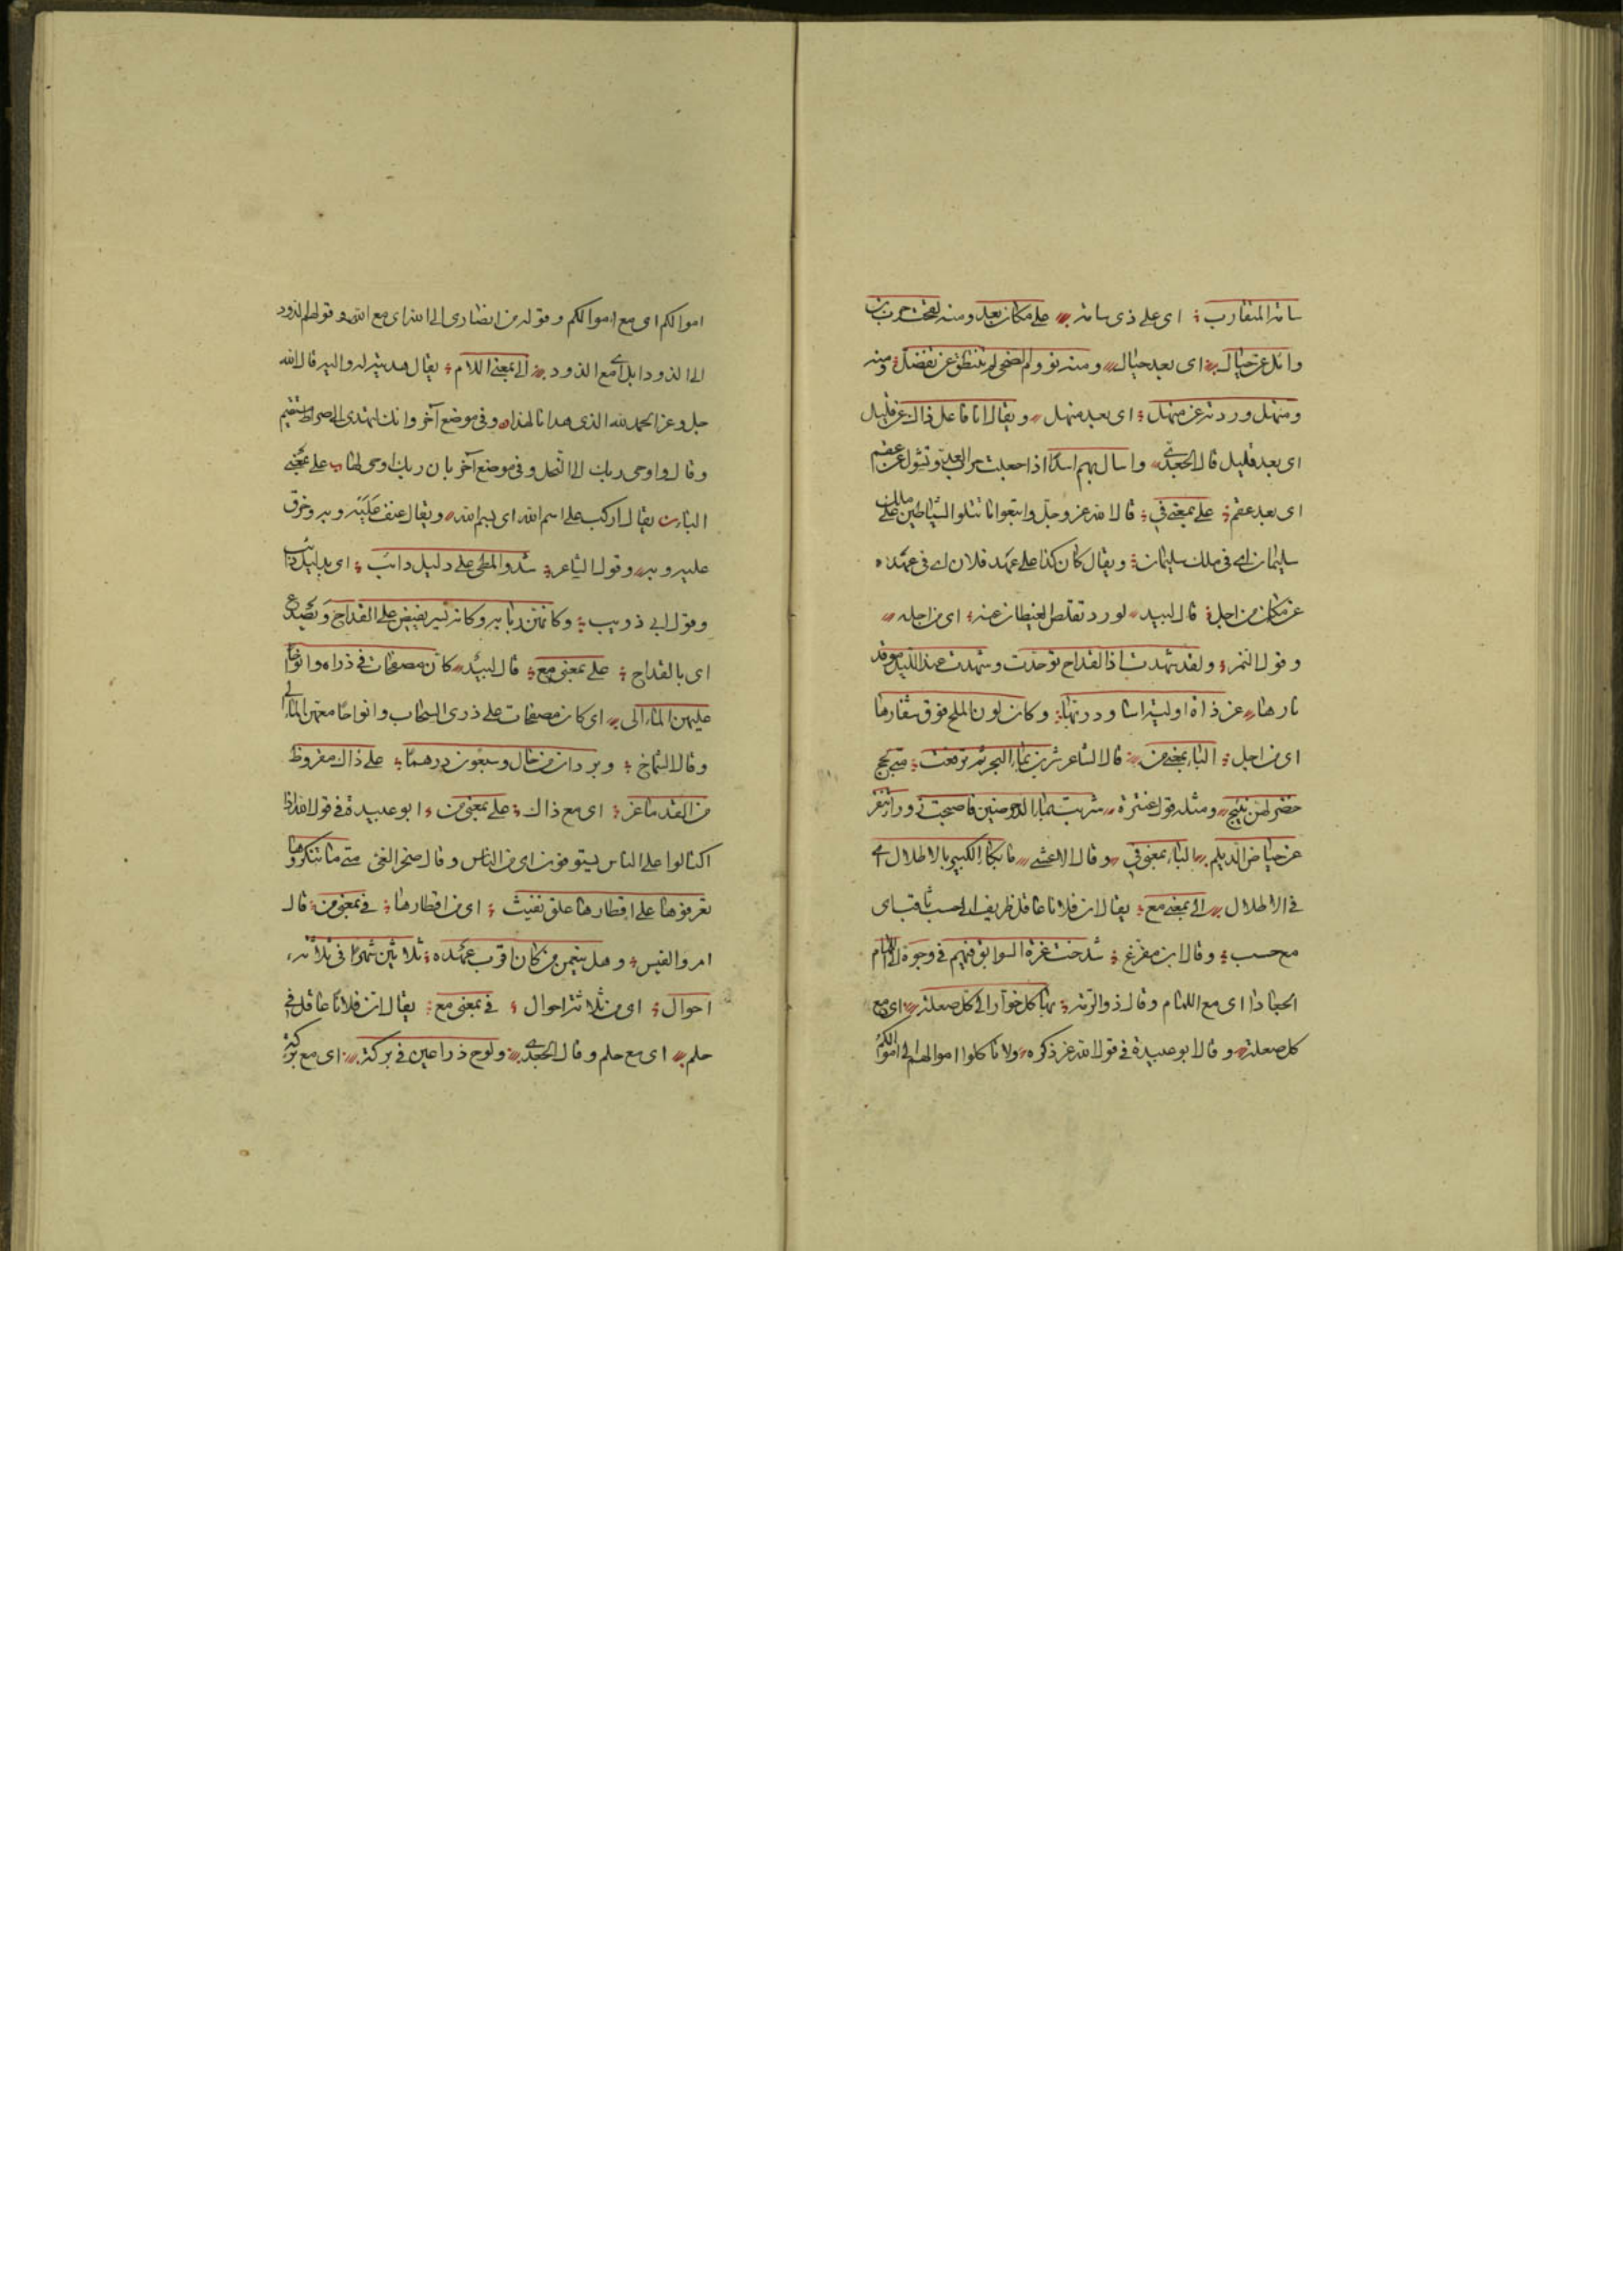 سامه المتقارب اى على ذى سامه على مكان بعد ومنه لقحت حرب
وائل عن حيال اى بعد حيال ومنه نووم الضحى لم تنطق عن تفضل ومنه
ومنهل وردته عن منهل اى بعد منهل ويقال انا فاعل ذاك عن قليل
اى بعد قليل قال الجعدى واسال بهم اسدا اذا جعلت حرب العدو تشول عن عقم
اى بعد عقم على بمعنى فى قال الله عز وجل واتبعوا ما تتلوا الشياطين على ملك
سليمان اى فى ملك سليمان ويقال كان كذا على عهد فلان اى فى عهده
عن مكان من اجل قال لبيد لورد تقلص الغيطان عنه اى من اجله
وقول النمر ولقد شهدت اذا القداح توحدت وشهدت عند الليل موقد
نارها عن ذاة اولية اساود ربها وكان لون الملح فوق شفارها
اى من اجل الباء بمعنى من قال الشاعر شربن بماء البحر ثم ترفعت متى لجج
خضر لهن نئيج ومثله قول عنترة شربت بماء الدحرضين فاصبحت زوراء تنفر
عن حياض الديلم الباء بمعنى فى وقال الاعشى ما بكاء الكبير بالاطلال اى
فى الاطلال الى بمعنى مع يقال ان فلانا عاقل ظريف الى حسب ثاقب اى
مع حسب وقال ابن مفرغ شدخت غرة السوابق فيهم فى وجوه الى اللمام
الجعادا اى مع اللمام وقال ذو الرمه بها كل خوار الى كل صعلة اى مع
كل صعلة وقال ابو عبيدة فى قول الله عز ذكره ولا تاكلوا اموالهم الى اموالكم
اموالكم اى مع اموالكم وقوله من انصارى الى الله اى مع الله وقولهم الذود
الى الذود ابل اى مع الذود الى بمعنى اللام يقال هديته له واليه قال الله
جل وعز الحمد لله الذى هدانا لهذا وفى موضع آخر وانك لتهدى الى صراط مستقيم
وقال واوحى ربك الى النحل وفى موضع آخر بان ربك اوحى لها على بمعنى
الباء يقال اركب على اسم الله اى بسم الله ويقال عنف عليه وبه وخرق
عليه وبه وقول الشاعر شدوا المطى على دليل دائب اى بدليل دائب
وقول ابى ذويب وكانهن ربابه وكانه يسر يفيض على القداح ويصدع
اى بالقداح على بمعنى مع قال لبيد كان مصفحات فى ذراه وانواحا
عليهن المالى اى كان مصفحات على ذرى السحاب وانواحا معهن المالى
وقال الشماخ وبردان من خال وسبعون درهما على ذاك مقروظ
من القد ماعز اى مع ذاك على بمعنى من ابو عبيدة فى قول الله اذا
اكتالوا على الناس يستوفون اى من الناس وقال صخر الغى متى ما تنكروها
تعرفوها على اقطارها علق نفيث اى من اقطارها فى بمعنى من قال
امرو القيس وهل ينعمن من كان اقرب عهده ثلاثين شهرا فى ثلاثه
احوال اى من ثلاثة احوال فى بمعنى مع يقال ان فلانا عاقل فى
حلم اى مع حلم وقال الجعدى ولوح ذراعين فى بركة اى مع بركة